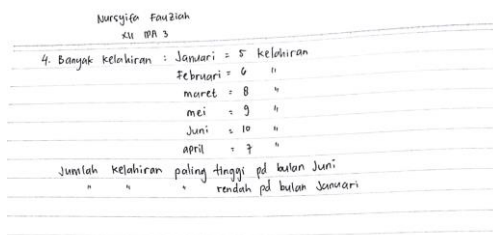 Nursyifa Fauziah
XII IPA 3
4. Banyak kelahiran : Januari = 5 kelahiran
Februari = 6 "
maret = 8 "
mei = 9 "
Juni = 10 "
april = 7 "
Jumlah kelahiran paling tinggi pd bulan Juni
" " " rendah pd bulan Januari